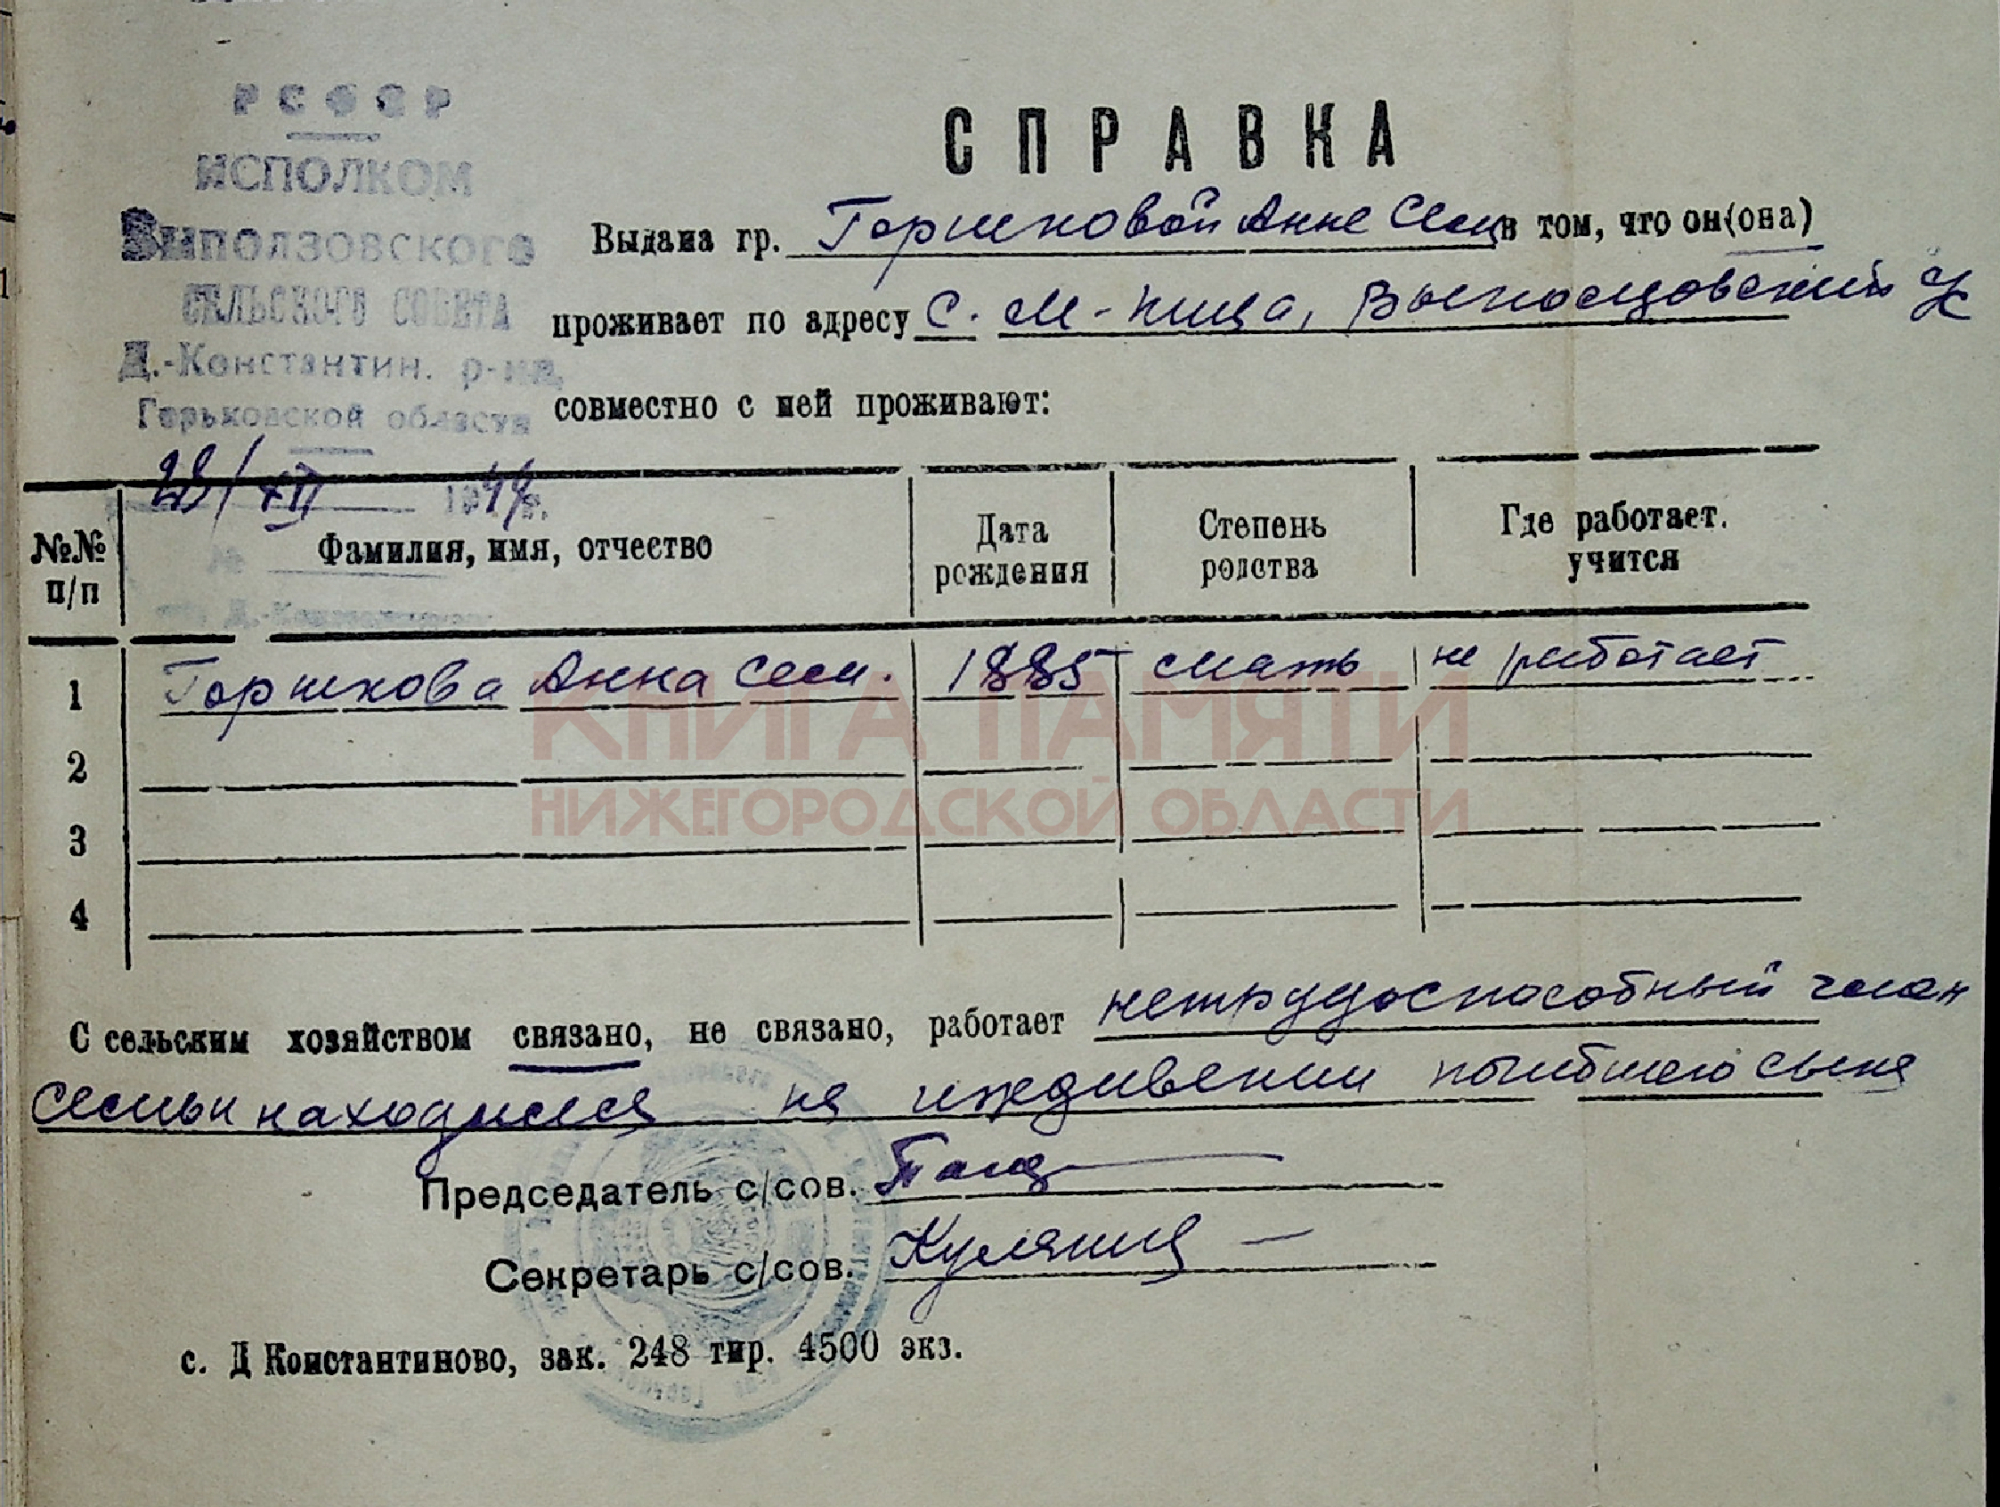 РСФСР
ИСПОЛКОМ
Выползовского
СЕЛЬСКОГО СОВЕТА
Д.-Константин. р-на,
Горьковской области
28/XII 1944г.
№
СПРАВКА
Выдана гр. Горшковой Анне Сем в том, что он(она)
проживает по адресу с. М-Пица, Выползовский с/с
совместно с ней проживают:
№№ п/п
Фамилия, имя, отчество
Дата рождения
Степень родства
Где работает. учится
1 Горшкова Анна Сем. 1885 мать не работает
2
3
4
КНИГА ПАМЯТИ
НИЖЕГОРОДСКОЙ ОБЛАСТИ
С сельским хозяйством связано, не связано, работает нетрудоспособный член
семьи находился на иждивении погибшего сына
Председатель с/сов.
Секретарь с/сов.
с. Д Константиново, зак. 248 тир. 4500 экз.